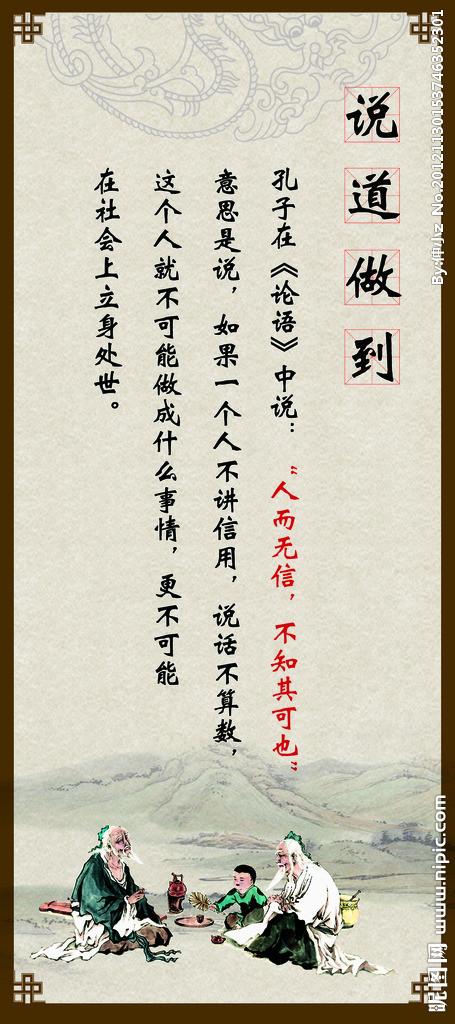 说道做到
孔子在《论语》中说：“人而无信，不知其可也”
意思是说，如果一个人不讲信用，说话不算数，
这个人就不可能做成什么事情，更不可能
在社会上立身处世。
By:仲小z No.20121130153746352301
昵图网 www.nipic.com